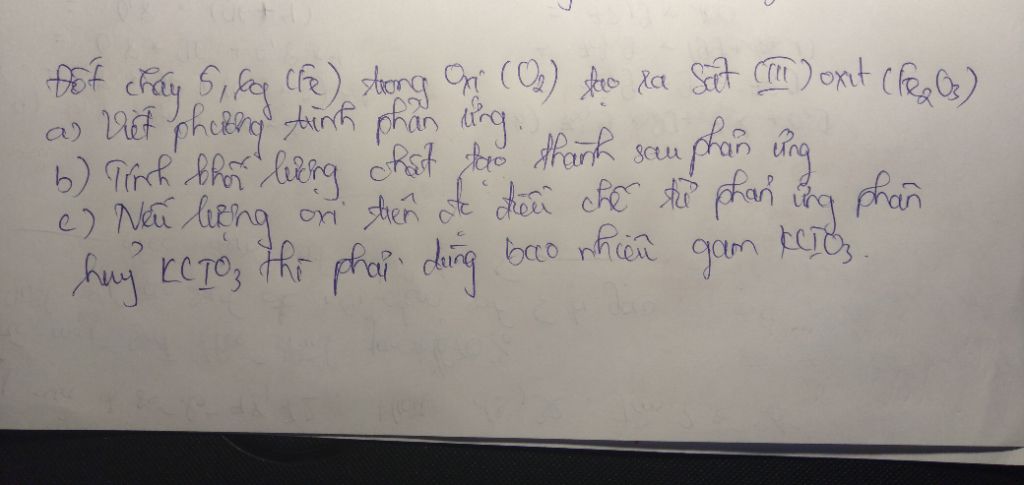 Đốt cháy 5,6g (Fe) trong Oxi (O2) tạo ra Sắt (III) oxit (Fe2O3)
a) Viết phương trình phản ứng.
b) Tính khối lượng chất tạo thành sau phản ứng
c) Nếu lượng oxi trên đc điều chế từ phản ứng phân
huỷ KClO3 thì phải dùng bao nhiêu gam KClO3.